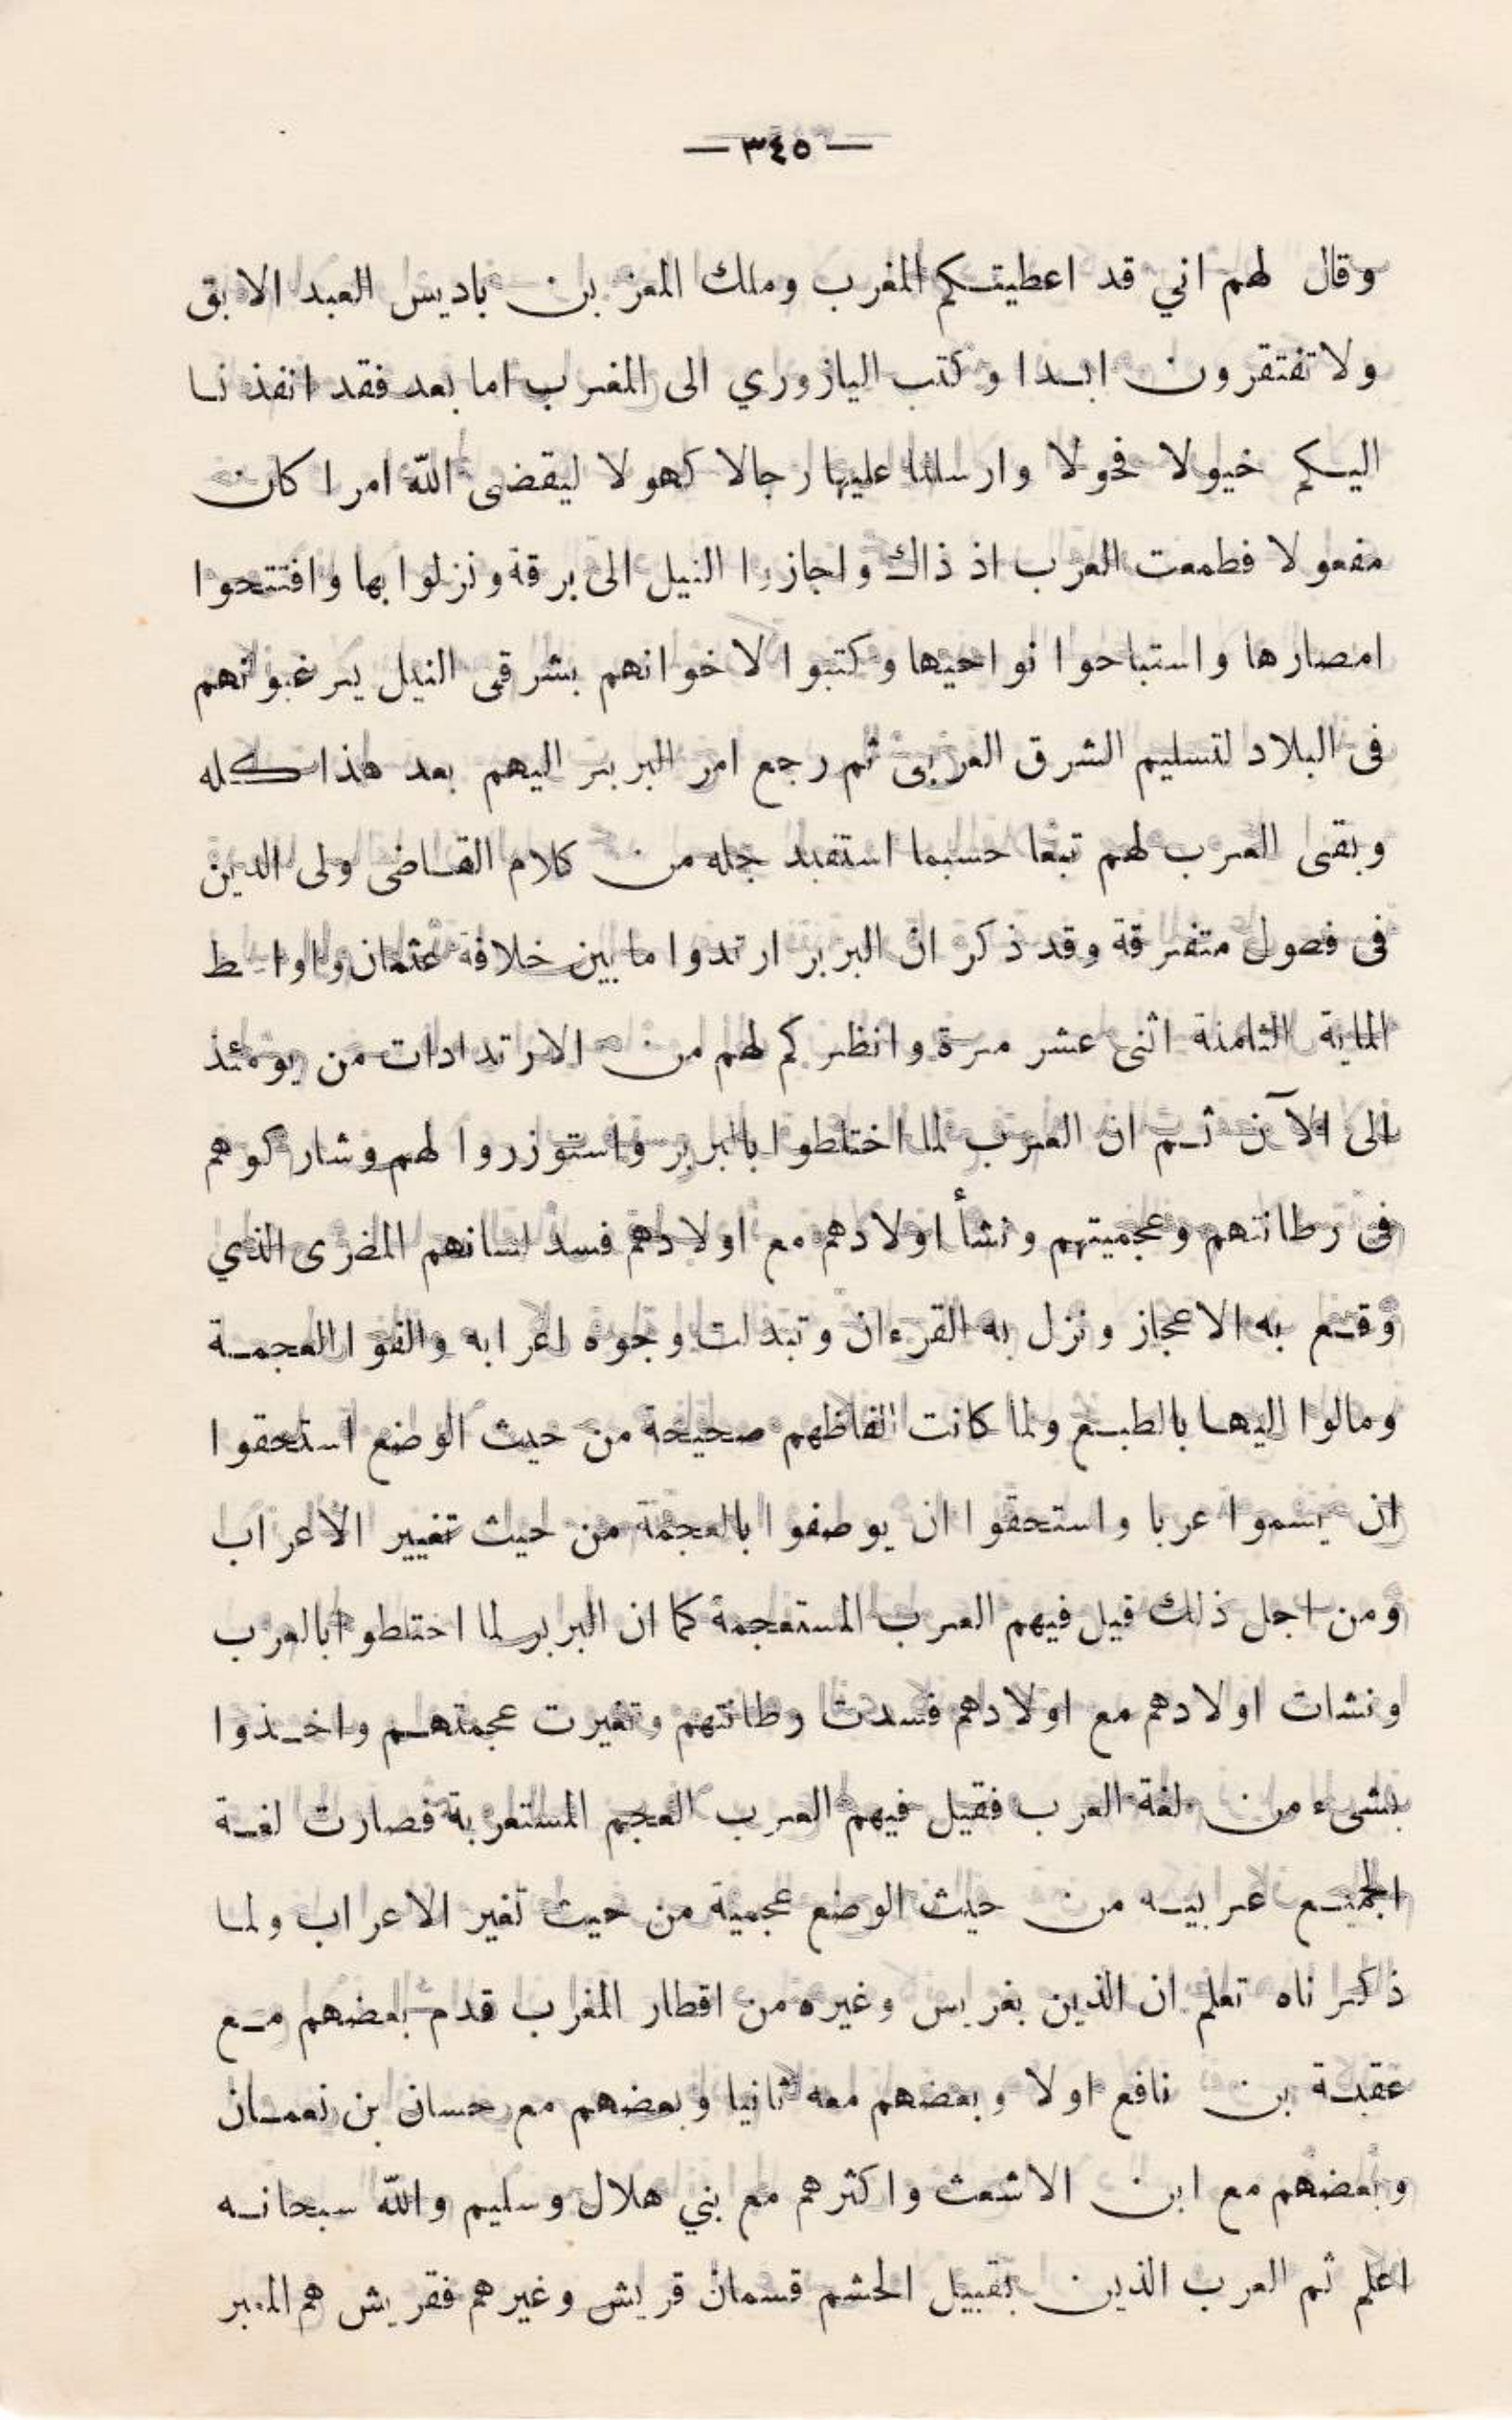 — ٣٤٥ —
وقال لهم اني قد اعطيتكم المغرب وملك المعز بن باديس العبد الابق
ولا تفتقرون ابدا وكتب اليازوري الى المغرب اما بعد فقد انفذنا
اليكم خيولا فحولا وارسلنا عليها رجالا كهولا ليقضى الله امرا كان
مفعولا فطمعت العرب اذ ذاك واجازوا النيل الى برقة ونزلوا بها وافتتحوا
امصارها واستباحوا نواحيها وكتبوا لاخوانهم بشرقى النيل يرغبونهم
فى البلاد لتسليم الشرق العربى ثم رجع امر البربر اليهم بعد هذا كله
وبقى العرب لهم تبعا حسبما استفيد جله من كلام القاضى ولى الدين
فى فصول متفرقة وقد ذكر ان البربر ارتدوا ما بين خلافة عثمان واواسط
الماية الثامنة اثنى عشر مرة وانظر كم لهم من الارتدادات من يومئذ
الى الآن ثم ان العرب لما اختلطوا بالبربر واستوزروا لهم وشاركوهم
فى رطانتهم وعجميتهم ونشأ اولادهم مع اولادهم فسد لسانهم المضرى الذي
وقع به الاعجاز ونزل به القرءان وتبدلت وجوه اعرابه والفوا العجمة
ومالوا اليها بالطبع ولما كانت الفاظهم صحيحة من حيث الوضع استحقوا
ان يسموا عربا واستحقوا ان يوصفوا بالعجمة من حيث تغيير الاعراب
ومن اجل ذلك قيل فيهم العرب المستعجمة كما ان البربر لما اختلطوا بالعرب
ونشات اولادهم مع اولادهم فسدت رطانتهم وتغيرت عجمتهم واخذوا
بشىء من لغة العرب فقيل فيهم العرب العجم المستعربة فصارت لغة
الجميع عربيه من حيث الوضع عجمية من حيث تغير الاعراب ولما
ذكرناه تعلم ان الذين بغريس وغيره من اقطار المغرب قدم بعضهم مع
عقبة بن نافع اولا وبعضهم معه ثانيا وبعضهم مع حسان بن نعمان
وبعضهم مع ابن الاشعث واكثرهم مع بني هلال وسليم والله سبحانه
اعلم ثم العرب الذين بقبيل الحشم قسمان قريش وغيرهم فقريش هم